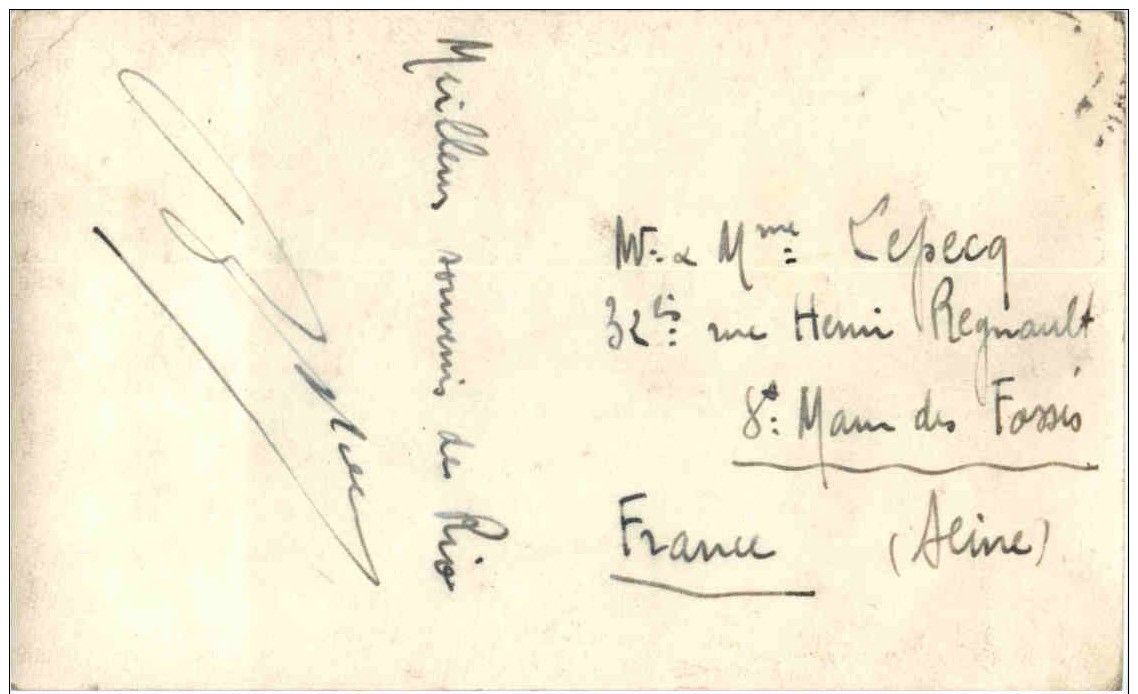 Meilleurs souvenirs de Rio
Mr & Mme Lepecq
32bis rue Henri Regnault
St. Maur des Fossés
France (Seine)